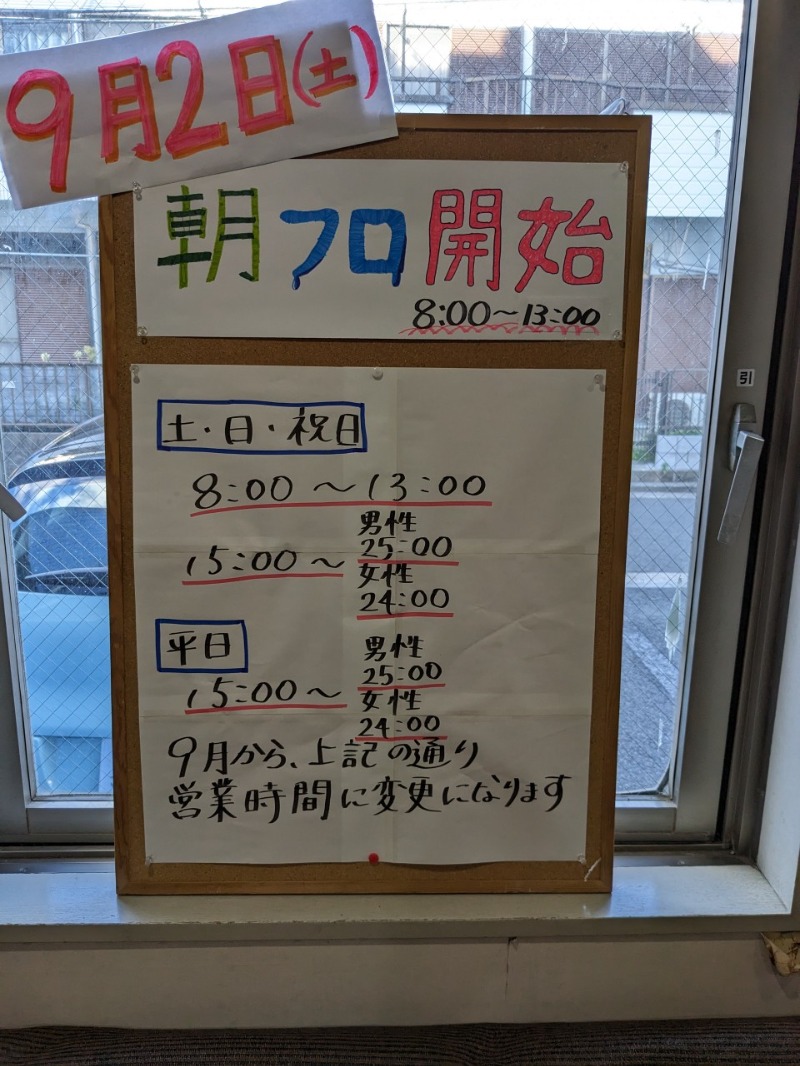 9月2日(土)
朝フロ開始
8:00〜13:00
土・日・祝日
8:00〜13:00
男性
15:00〜25:00
女性
24:00
平日
男性
15:00〜25:00
女性
24:00
9月から、上記の通り
営業時間に変更になります
引